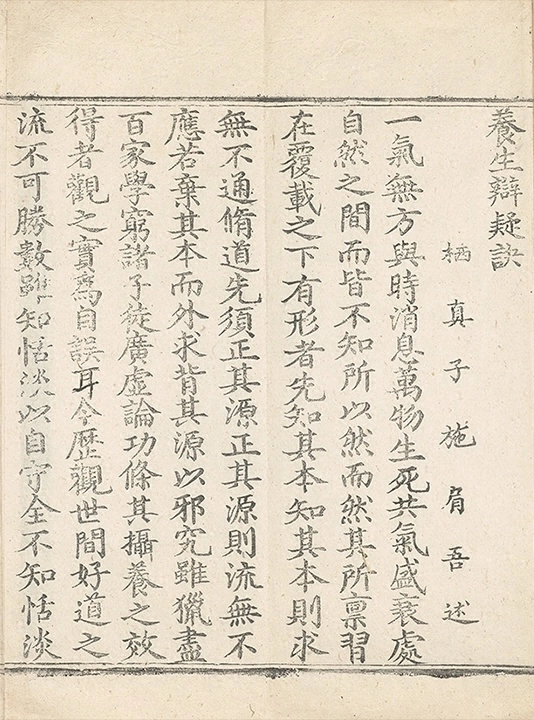 養生辯疑訣
栖真子施肩吾述
一氣無方與時消息萬物生死共氣盛衰處
自然之間而皆不知所以然而然其所禀習
在覆載之下有形者先知其本知其本則求
無不通脩道先須正其源正其源則流無不
應若棄其本而外求背其源以邪究雖獵盡
百家學窮諸子徒廣虛論功條其攝養之效
得者觀之實爲自誤耳今歷觀世間好道之
流不可勝數雖知恬淡以自守全不知恬淡